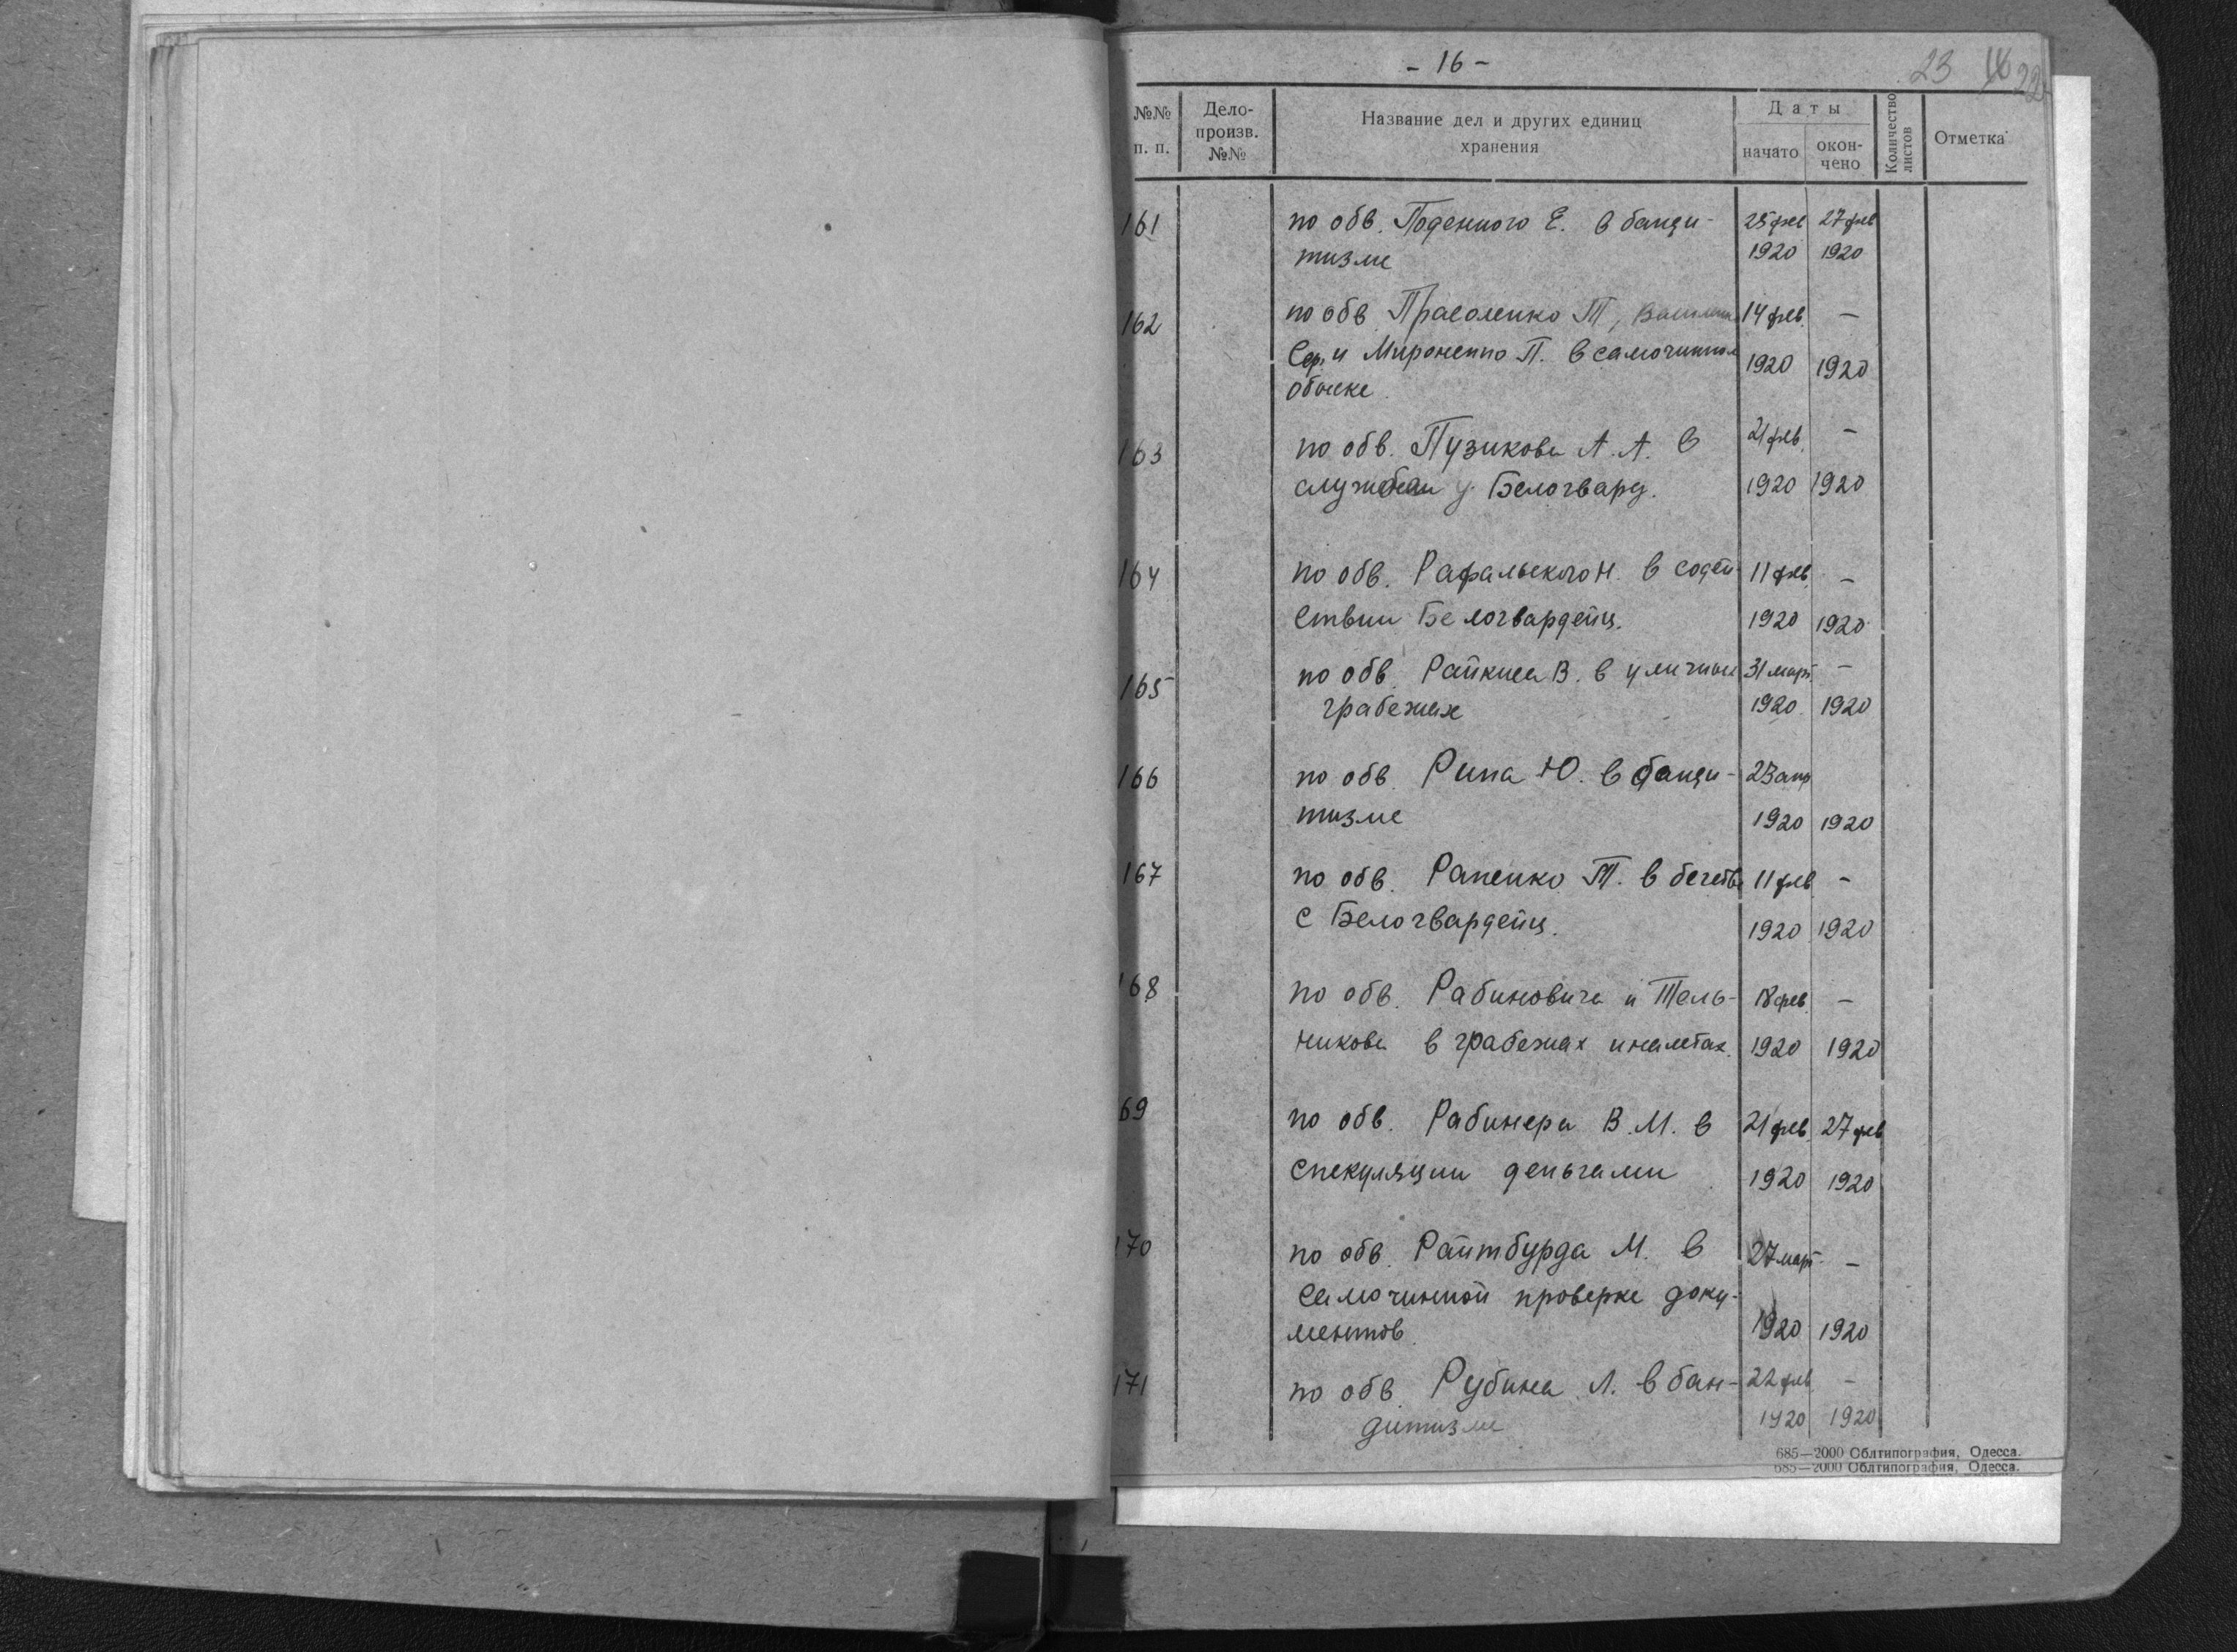 - 16 -
23 16 22
№№ п. п.
Дело-произв. №№
Название дел и других единиц хранения
Даты
начато
окон-чено
Количество листов
Отметка
161 по обв. Поденного Е. в банди- 25 фев 27 фев
тизме 1920 1920
162 по обв. Прасоленко Т, 14 фев. -
Сер. и Мироненко П. в самочинном 1920 1920
обыске.
163 по обв. Пузикова А. А. в 21 фев. -
службе у Белогвард. 1920 1920
164 по обв. Рафальского Н. в содей- 11 фев. -
ствии Белогвардейц. 1920 1920
165 по обв. Райкина В. в уличном 31 март. -
грабежах 1920 1920
166 по обв. Рипа Ю. в банди- 23 апр
тизме 1920 1920
167 по обв. Рапенко Т. в бегстве 11 фев. -
с Белогвардейц. 1920 1920
168 по обв. Рабиновича и Тель- 18 фев. -
никова в грабежах и налетах. 1920 1920
69 по обв. Рабинера В. М. в 21 фев. 27 фев
спекуляции деньгами 1920 1920
170 по обв. Райтбурда М. в 27 март. -
самочинной проверке доку-
ментов. 1920 1920
171 по обв. Рубина Л. в бан- 22 фев. -
дитизме 1920 1920
685—2000 Облтипография, Одесса.
685—2000 Облтипография, Одесса.